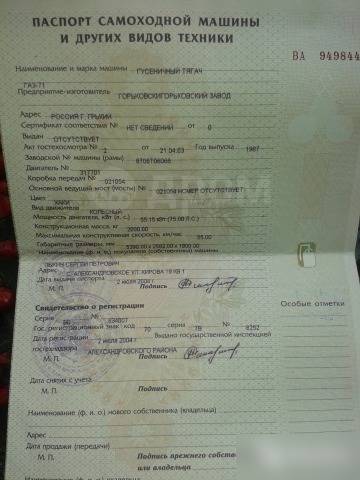 ПАСПОРТ САМОХОДНОЙ МАШИНЫ
И ДРУГИХ ВИДОВ ТЕХНИКИ
ВА 949844
Наименование и марка машины ГУСЕНИЧНЫЙ ТЯГАЧ
ГАЗ-71
Предприятие-изготовитель ГОРЬКОВСКИГОРЬКОВСКИЙ ЗАВОД
Адрес РОССИЯ Г.
Сертификат соответствия № НЕТ СВЕДЕНИЙ от 0
Выдан ОТСУТСТВУЕТ
Акт гостехосмотра № 2 от 21.04.03 Год выпуска 1987
Заводской № машины (рамы)
Двигатель № 317701
Коробка передач № 021054
Основной ведущий мост (мосты) № 021054 НОМЕР ОТСУТСТВУЕТ
Цвет ХАКИ
Вид движителя КОЛЕСНЫЙ
Мощность двигателя, кВт (л.с.) 55.15 кВт (75.00 Л.С.)
Конструкционная масса, кг 3200.00
Максимальная конструктивная скорость, км/час 55.00
Габаритные размеры, мм
Наименование (ф. и. о.) собственника машины (владельца)
СЕРГЕЙ ПЕТРОВИЧ
Адрес С. АЛЕКСАНДРОВСКОЕ УЛ. КИРОВА
Дата выдачи паспорта 2 июля 2004 г.
М. П. Подпись
Свидетельство о регистрации
Особые отметки
Серия
Гос. регистрационный знак: код 70 серия ТВ № 8252
Дата 2 июля 2004 г. Выдано государственной инспекцией
гостехнадзора АЛЕКСАНДРОВСКОГО РАЙОНА
М. П. Подпись
Дата снятия с учета
М. П. Подпись
Наименование (ф. и. о.) нового собственника (владельца)
Адрес
Дата продажи (передачи)
М. П. Подпись прежнего
или владельца